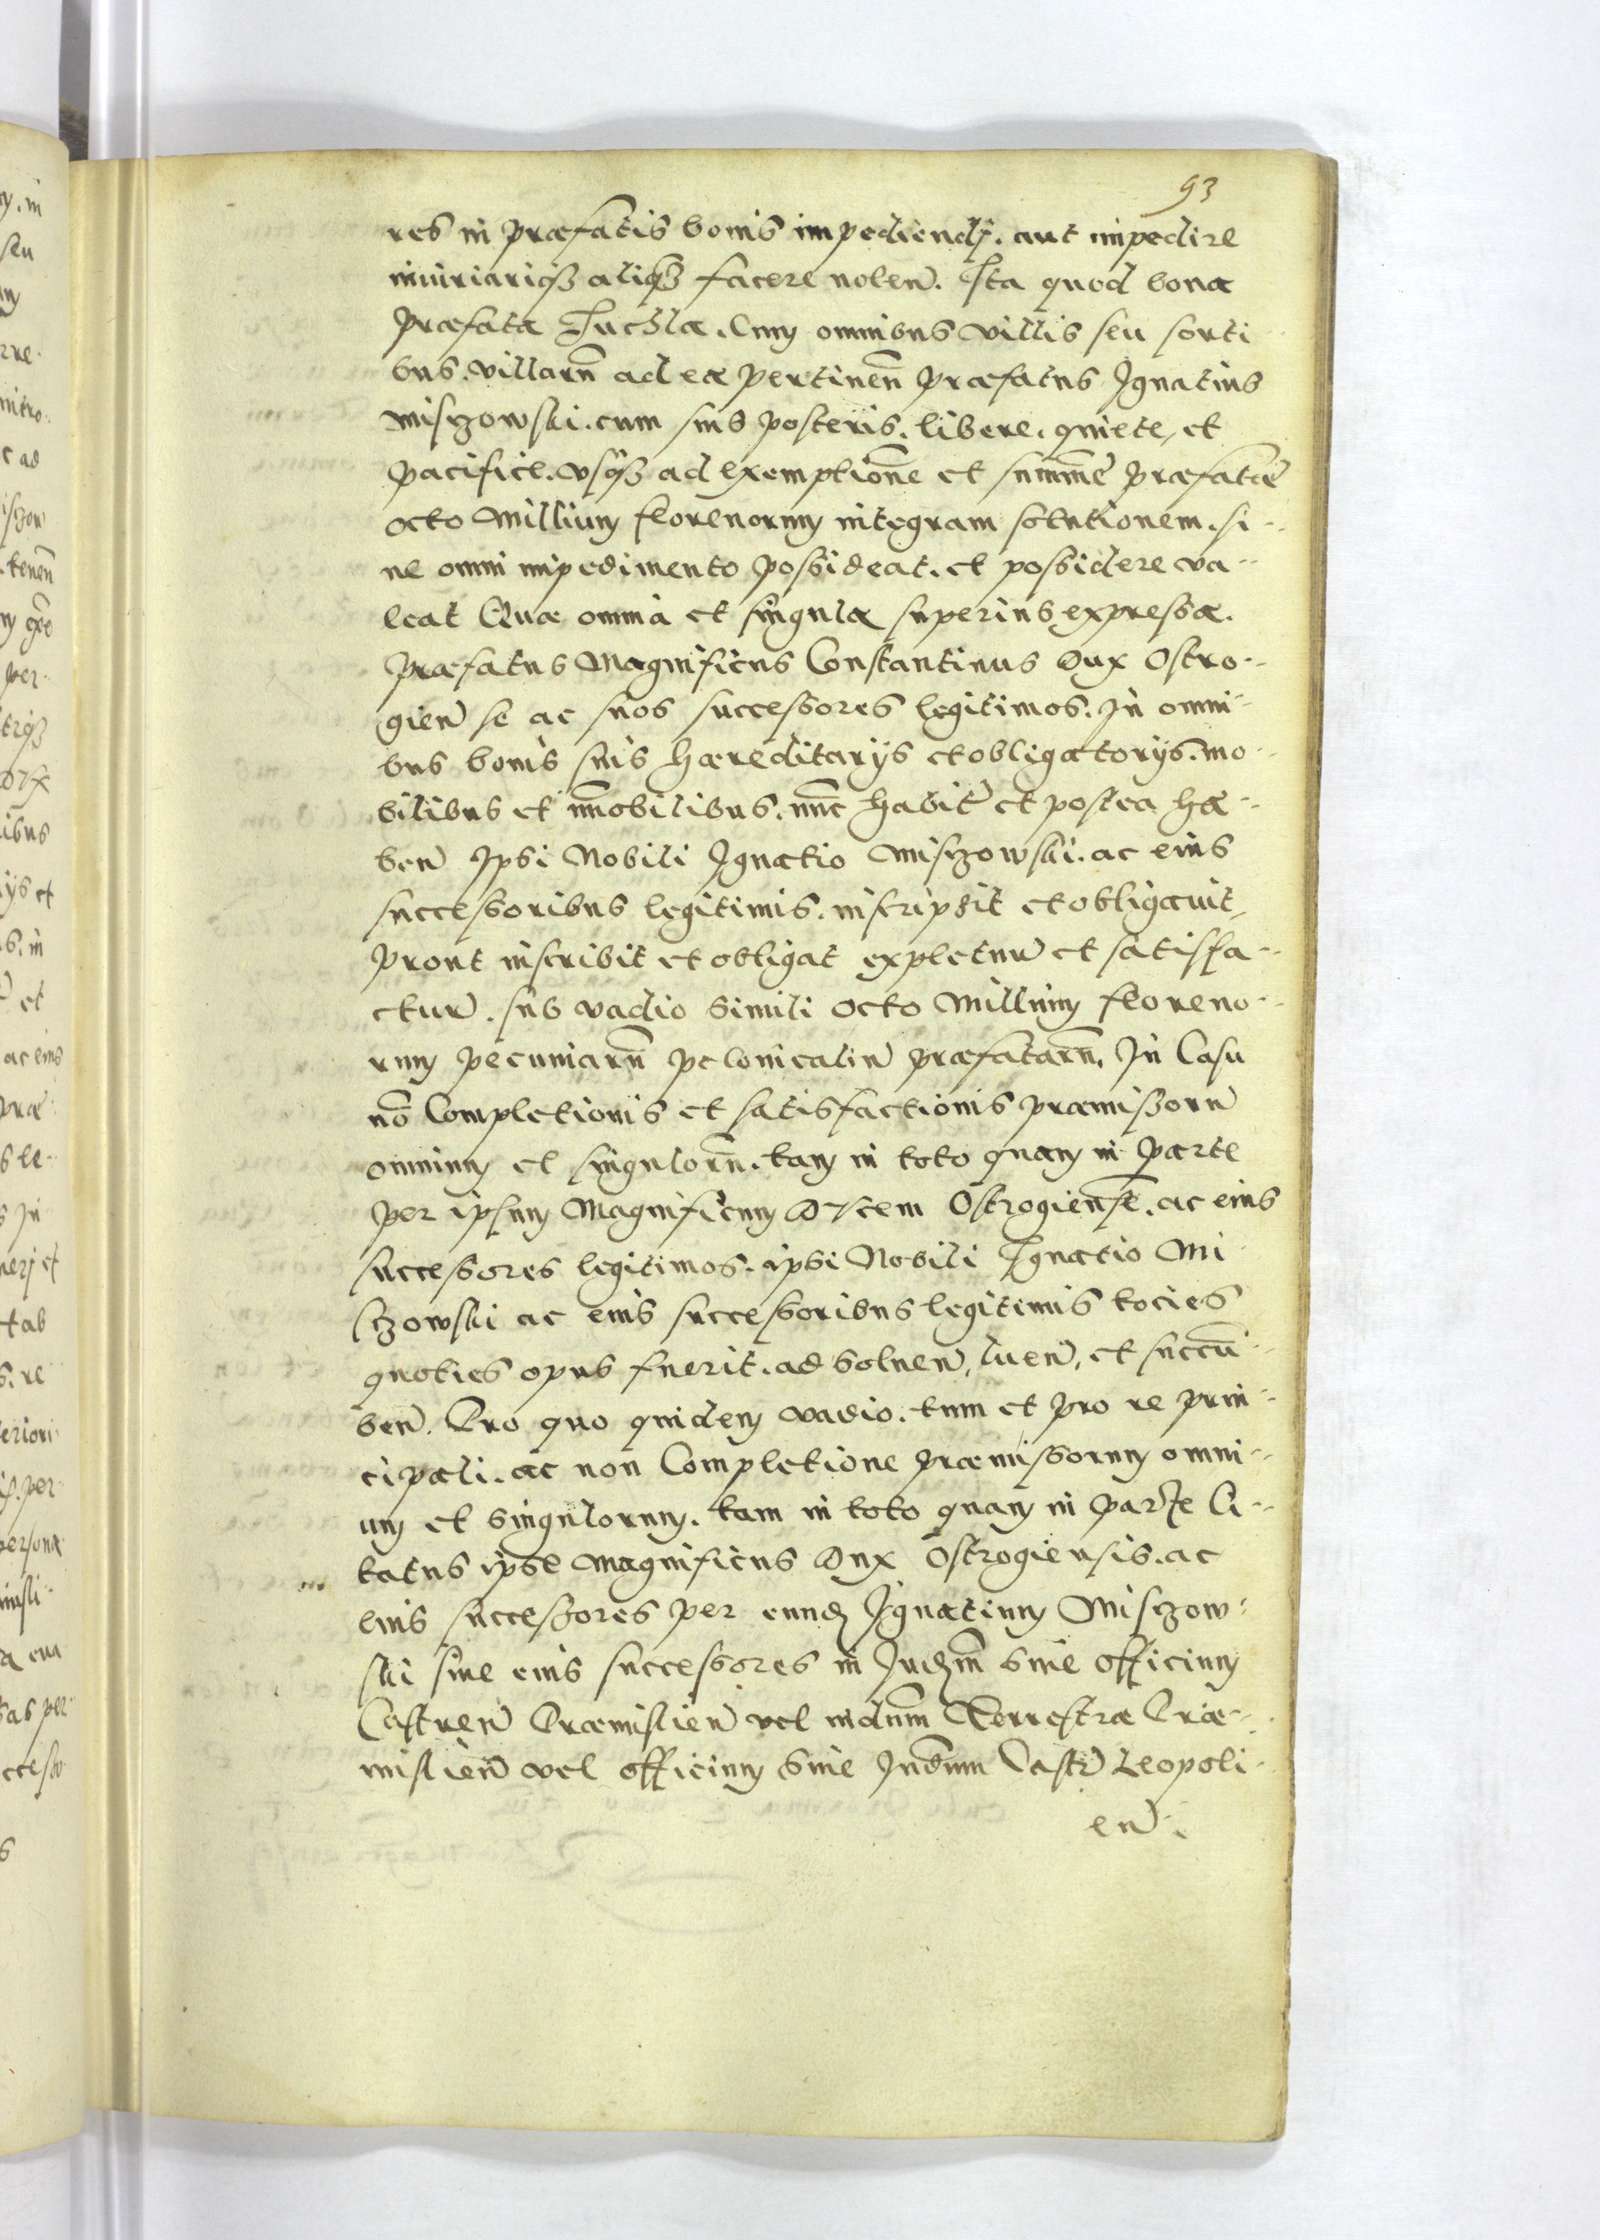 93
res in præfatis bonis impediendj. aut impedire
iniuriariqz aliqz facere nolen. Ita quod bona
præfata Tuchla. Cum omnibus villis seu sorti
bus. villarū ad ea pertinen præfatus Ignatius
Misczowski. cum suis posteris. libere. quiete, et
pacifice. vsqz ad exemptionē et summē præfatæ
octo Millium florenorum integram solutionem. si-
ne omni impedimento possideat. et possidere va-
leat Quæ omnia et singula superius expressa.
Præfatus Magnificus Constantinus Dux Ostro-
gien se ac suos successores legitimos. In omni-
bus bonis suis hæreditarijs et obligatorijs. mo-
bilibus et īmobilibus. nūc habit et postea ha-
ben Ipsi Nobili Ignatio Misczowski. ac eius
successoribus legitimis. inscripsit et obligauit,
Prout inscribit et obligat expletur et satisfa-
ctur. sub vadio simili octo Millium floreno-
rum pecuniarū polonicaliu præfatarū. In Casu
nō Completionis et satisfactionis præmissoru
omnium et singulorū. tam in toto quam in parte
per ipsum Magnificum Ducem Ostrogiensē. ac eius
successores legitimos. ipsi Nobili Ignatio Mi
sczowski ac eius successoribus legitimis tocies
quoties opus fuerit. ad soluen, luen, et succū-
ben. Pro quo quidem vadio. tum et pro re prin-
cipali. ac non Completione præmissorum omni-
um et singulorum. tam in toto quam in parte Ci-
tatus ipse Magnificus Dux Ostrogiensis. ac
eius successores per eund Ignatium Misczow-
ski siue eius successores in Judm siue officium
Castren Præmislien vel indum Terrestræ Præ-
mislien vel officium siue Judium Castr Leopoli-
en.